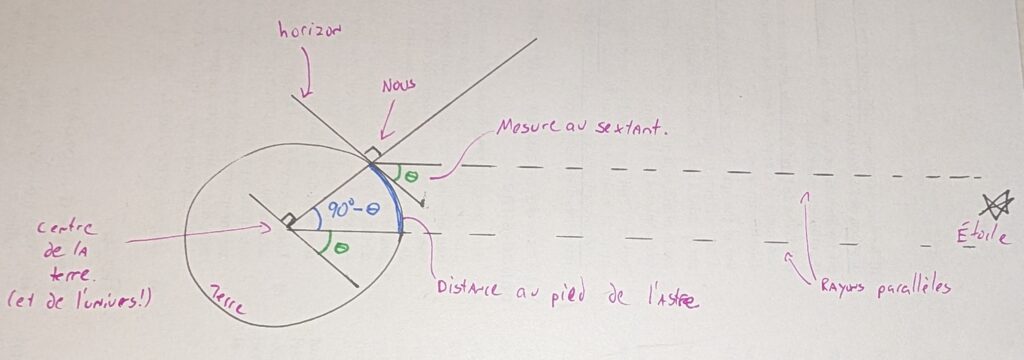 horizon
Nous
Mesure au sextant.
θ
90°-θ
θ
Centre
de la
terre.
(et de l'univers!)
Terre
Distance au pied de l'Astre
Étoile
Rayons parallèles